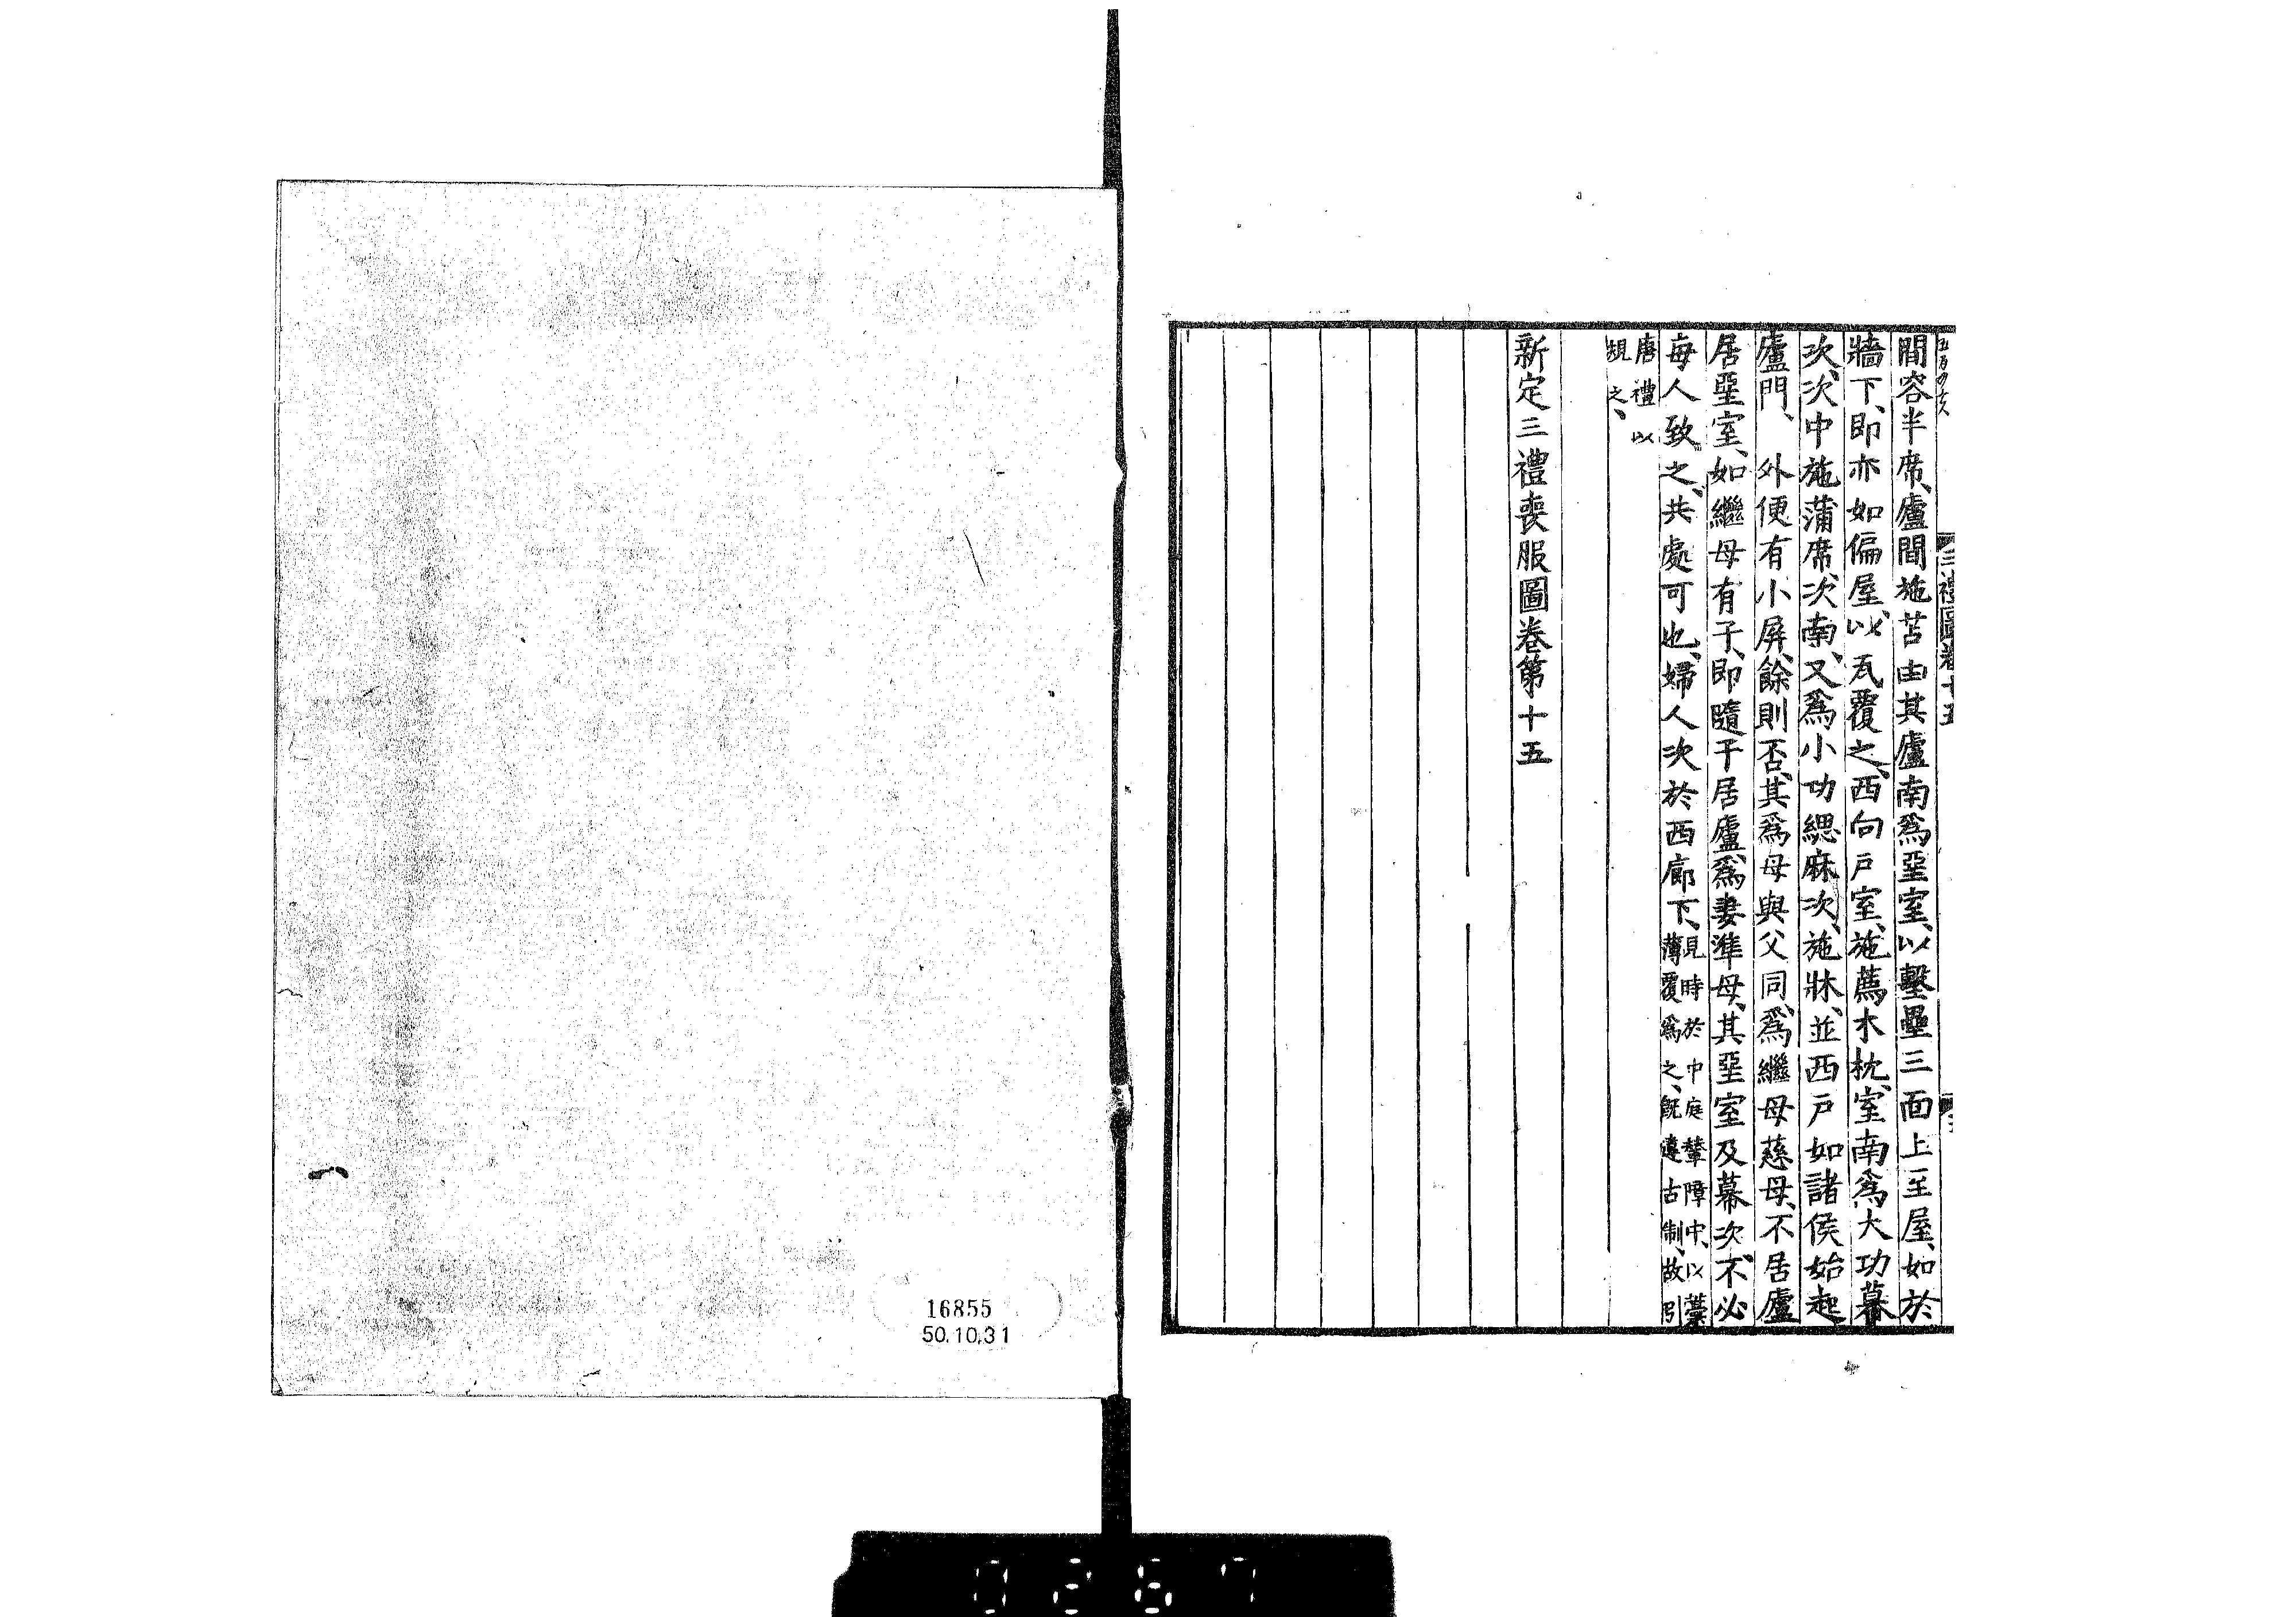 三禮圖卷十五
間容半席、廬間施苫由其廬南爲堊室、以墼壘三面上至屋、如於
牆下、即亦如偏屋、以瓦覆之、西向戸室、施薦木枕、室南爲大功幕
次、次中施蒲席、次南、又爲小功緦麻次、施牀、並西戸如諸侯、始起
廬門、外便有小屏、餘則否、其爲母與父同、爲繼母慈母、不居廬
居堊室、如繼母有子、即隨干居廬、爲妻準母、其堊室及幕次、不必
每人致之、共處可也、婦人次於西廊下、見時於中庭輦障中、以藁
薄覆爲之、既違古制、故引
唐禮以
規之、
新定三禮喪服圖卷第十五
16855
50.10.31
0267